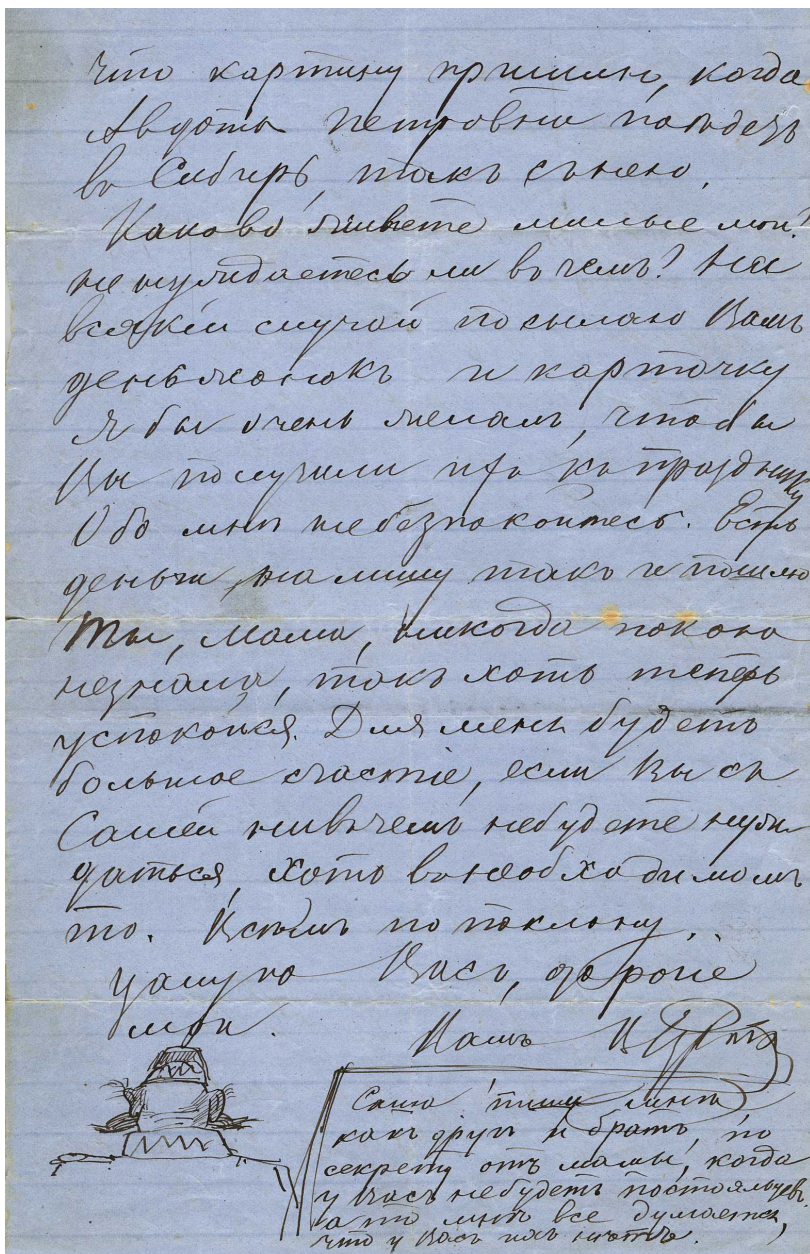 что картину пришлю, когда
Авдотья Петровна поѣдетъ
въ Сибирь, такъ съ нею.
Каково живете милые мои?
не нуждаетесь ли въ чемъ? На
всякій случай посылаю Вамъ
деньжонокъ и карточку
я бы очень желалъ, чтобы
Вы получили къ празднику
Обо мнѣ небезпокойтесь. Есть
деньги, на лишу такъ и пошлю
Ты, мама, никогда покою
незнала, такъ хоть теперь
успокойся. Для меня будетъ
большое счастіе, если Вы съ
Сашей нивчемъ небудете нуж
даться, хоть внеобходимомъ
то. Всѣмъ по поклону.
Цалую Васъ, дорогіе
мои.
Вашъ В
Саша пиши мнѣ
какъ другъ и братъ, по
секрету отъ мамы, когда
у Васъ небудетъ постояльцевъ.
а то мнѣ все думается,
что у Васъ ихъ нѣтъ.